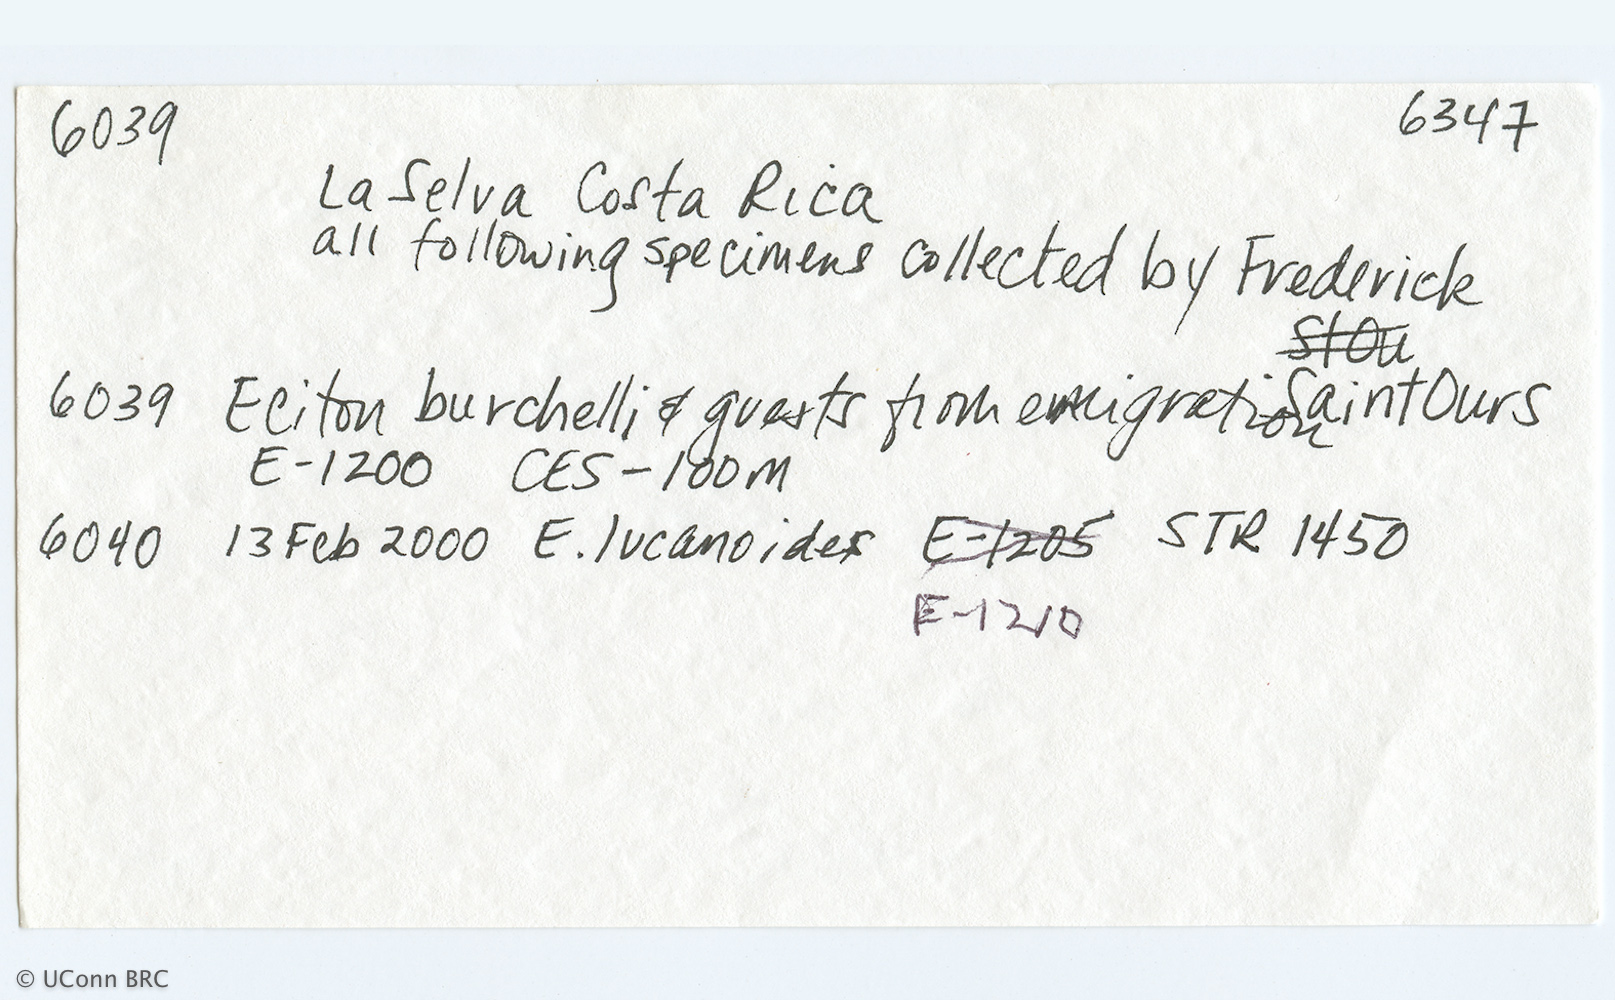 6039 6347
La Selva Costa Rica
all following specimens collected by Frederick
StOu
SaintOurs
6039 Eciton burchelli & guests from emigration
E-1200 CES-100m
6040 13 Feb 2000 E. lucanoides E-1205 STR 1450
E-1210
© UConn BRC